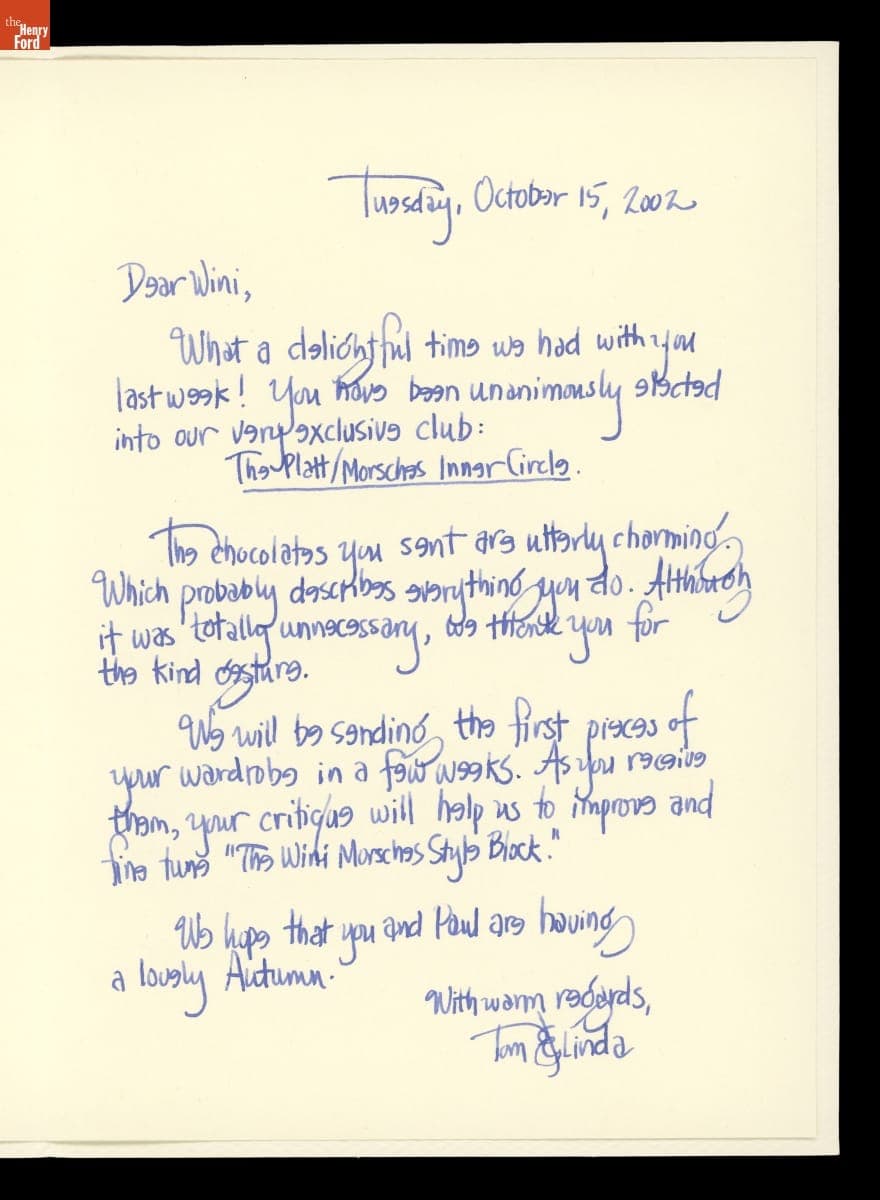 the
Henry
Ford
Tuesday, October 15, 2002
Dear Wini,
What a delightful time we had with you
last week! You have been unanimously elected
into our very exclusive club:
The Platt/Morsches Inner Circle.
The chocolates you sent are utterly charming.
Which probably describes everything you do. Although
it was totally unnecessary, we thank you for
the kind gesture.
We will be sending the first pieces of
your wardrobe in a few weeks. As you receive
them, your critique will help us to improve and
fine tune "The Wini Morsches Style Block."
We hope that you and Paul are having
a lovely Autumn.
With warm regards,
Tom & Linda